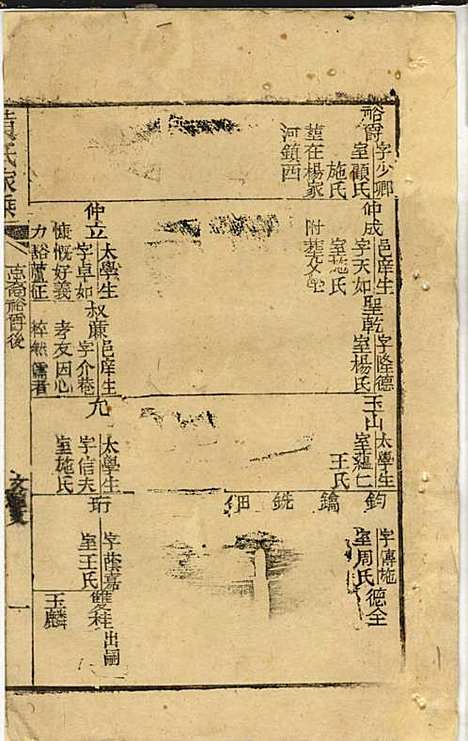 裕爵 字少卿 室顧氏 施氏 塋在楊家河鎮西
仲成 邑庠生 字天如 室施氏 附塋父
聖乾 字隆德 室楊氏
玉山 太學生 室 王氏
鈞 鑰 銑 鈿
字傳施 室周氏
德全
仲立 太學生 字卓如 慷慨好義 力豁蘆征
叔廉 邑庠生 字介菴 孝友因心 粹然儒者
九 太學生 字信夫 室施氏
珩 字蔭嘉 室王氏
雙桂 出嗣
玉麟
黃氏家乘
裕爵後
一